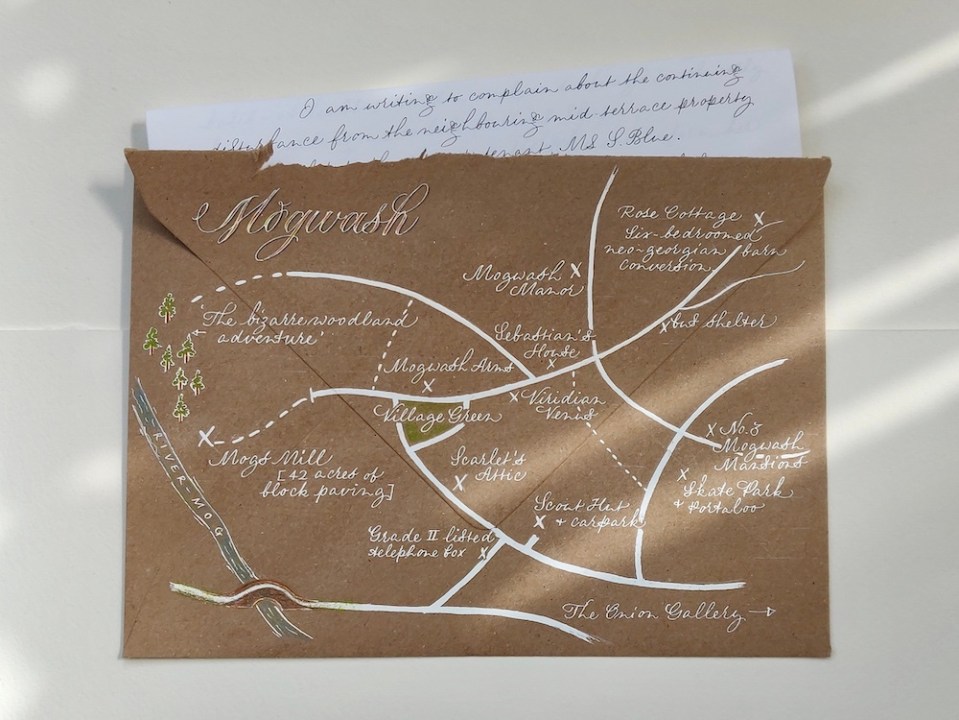 I am writing to complain about the continuing
disturbance from the neighbouring mid-terrace property
tenant, MS S. Blue.
Mogwash
Rose Cottage
Six-bedroomed
neo-georgian barn
conversion
Mogwash
Manor
'The bizarre woodland
adventure'
bus shelter
Sebastian's
House
Mogwash Arms
Viridian
Venus
Village Green
No. 3
Mogwash
Mansions
Mogs Mill
[42 acres of
block paving]
Scarlet's
Attic
Skate Park
& Portaloo
RIVER MOG
Scout Hut
+ carpark
Grade II listed
telephone box
The Onion Gallery